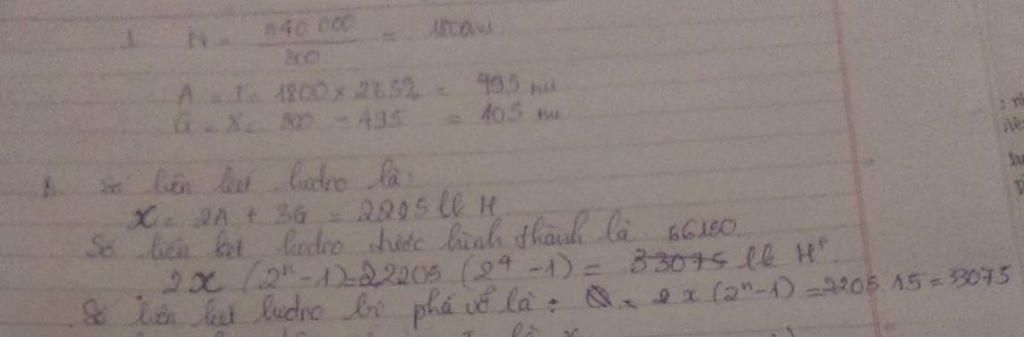 1 N = 540 000 / 300 = 1800 nu
A = T = 1800 × 27,5% = 495 nu
G = X = 900 - 495 = 405 nu
Số liên kết hidro là:
X = 2A + 3G = 2205 lk H
Số liên kết hidro được hình thành là 66150
2x (2ⁿ-1) = 2.2205 (2⁴ -1) = 33075 lk H
Số liên kết hidro bị phá vỡ là: = x (2ⁿ-1) = 2205.15 = 33075